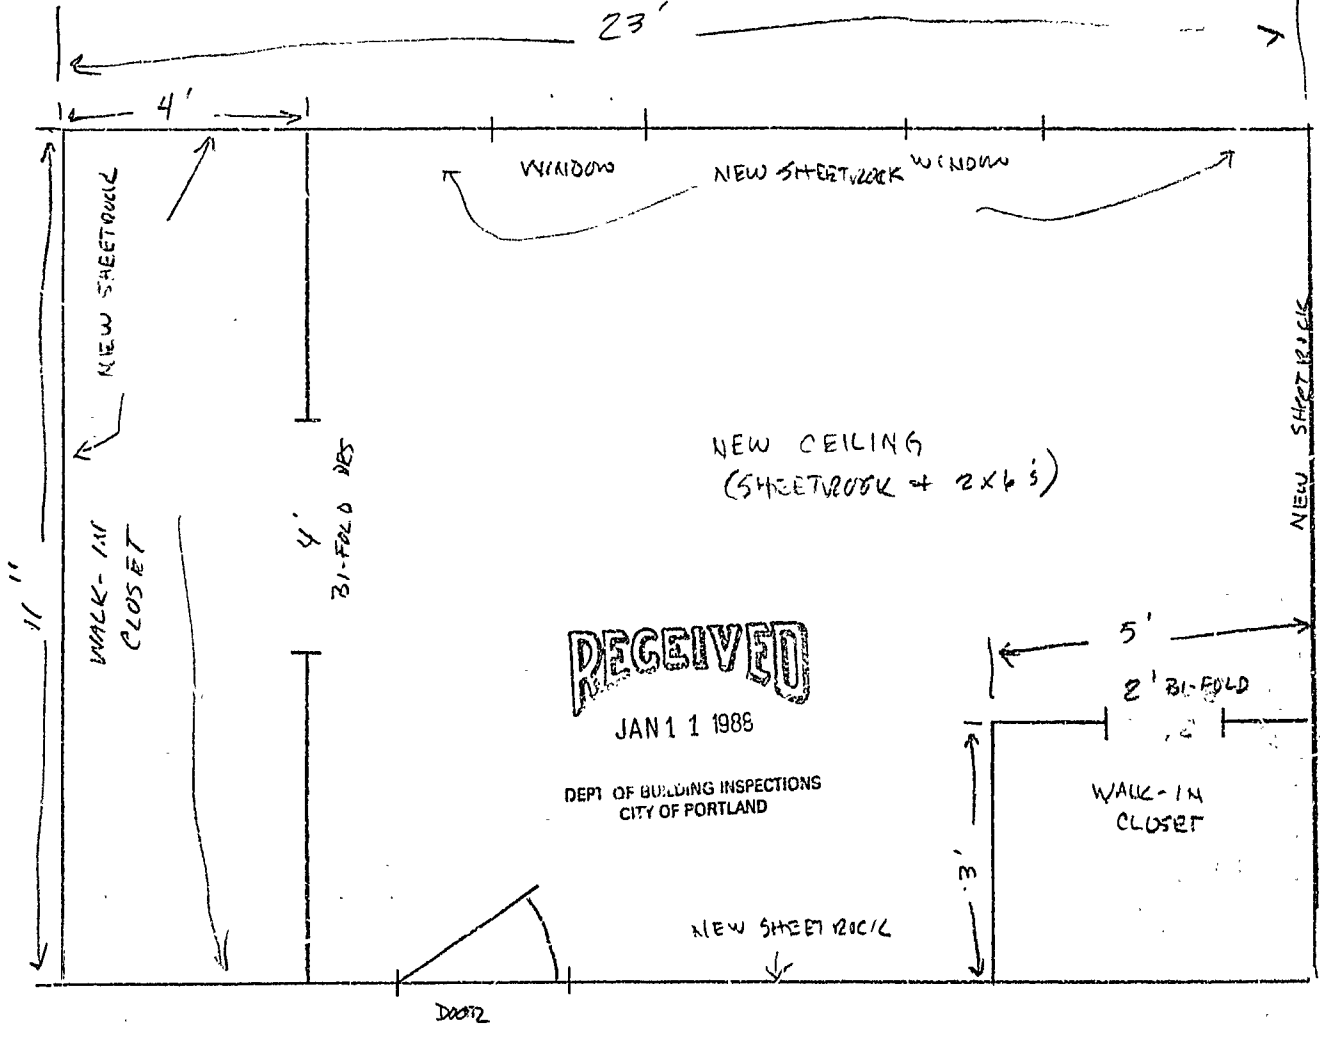 23'
4'
WINDOW
NEW SHEETROCK
WINDOW
NEW SHEETROCK
NEW SHEETROCK
NEW CEILING
(SHEETROCK + 2X6's)
4'
BI-FOLD DRS
WALK-IN
CLOSET
11''
RECEIVED
JAN 11 1988
DEPT OF BUILDING INSPECTIONS
CITY OF PORTLAND
5'
2' BI-FOLD
WALK-IN
CLOSET
3'
NEW SHEETROCK
DOOR